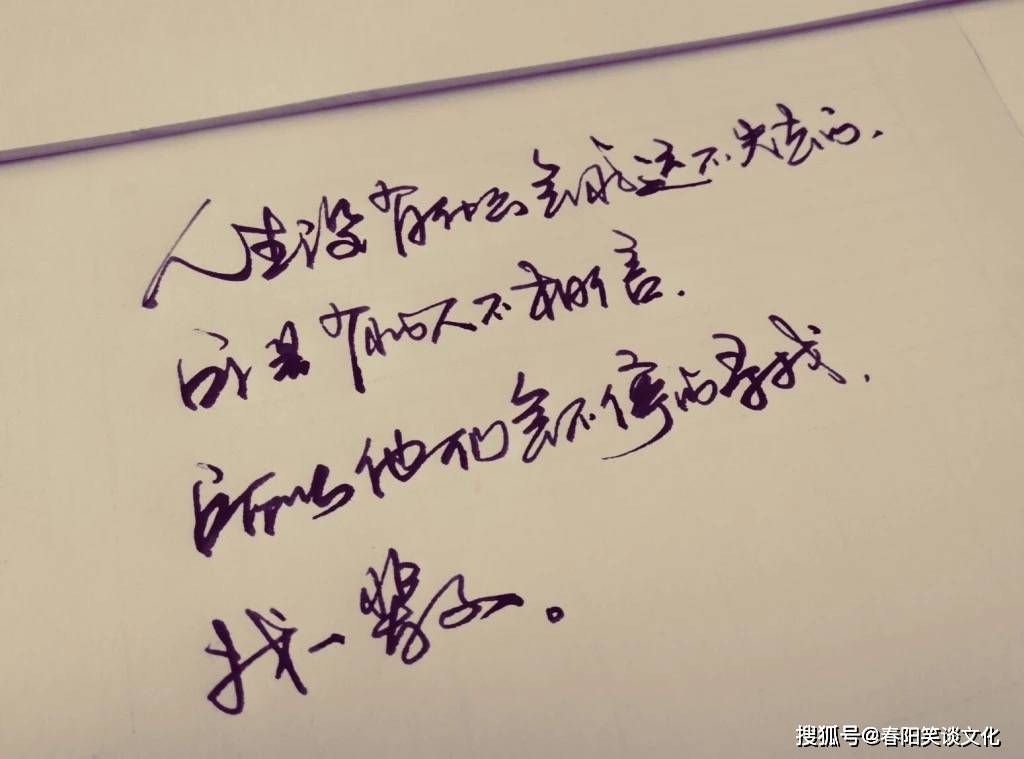 人生没有什么会永远不失去的.
只是有的人不相信.
所以他们会不停的寻找.
找一辈子。
搜狐号@春阳笑谈文化